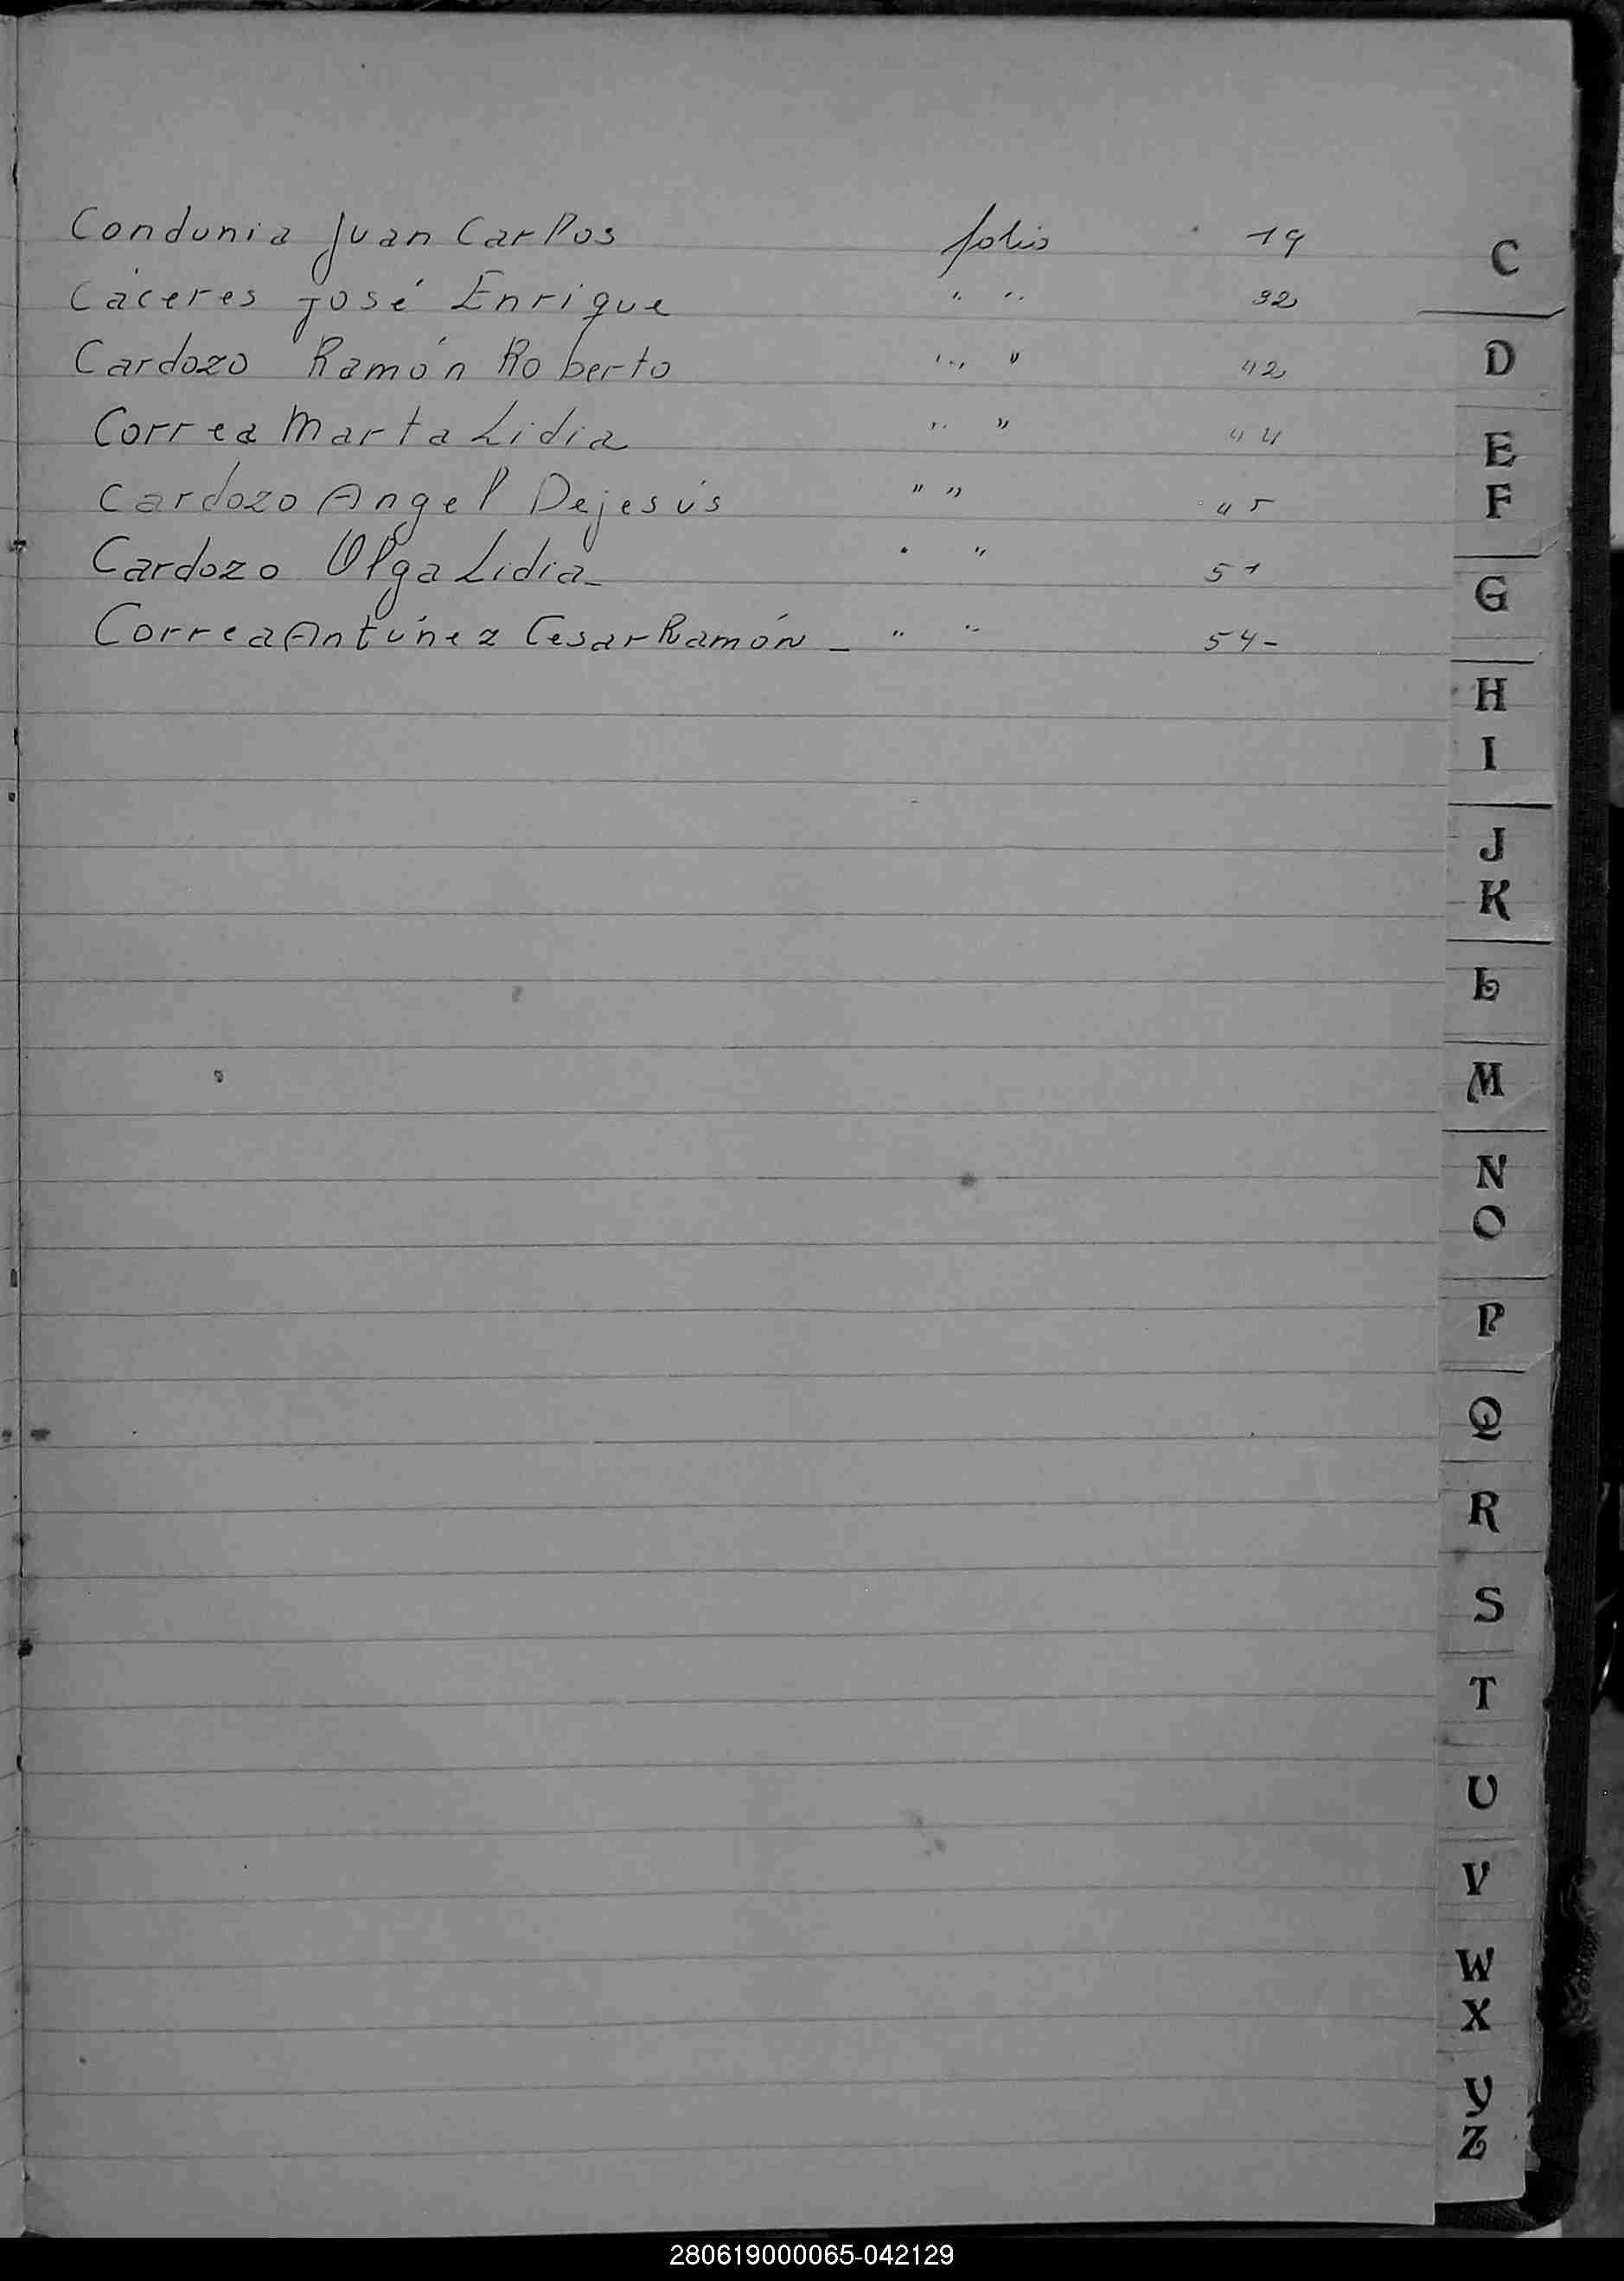 Condunia Juan Carlos folio 19
Cáceres José Enrique " " 32
Cardozo Ramón Roberto " " 42
Correa Marta Lidia " " 44
Cardozo Angel Dejesús " " 45
Cardozo Olga Lidia - " " 51
Correa Antúnez Cesar Ramón - " " 54 -
C
D
E
F
G
H
I
J
K
L
M
N
O
P
Q
R
S
T
U
V
W
X
Y
Z
280619000065-042129